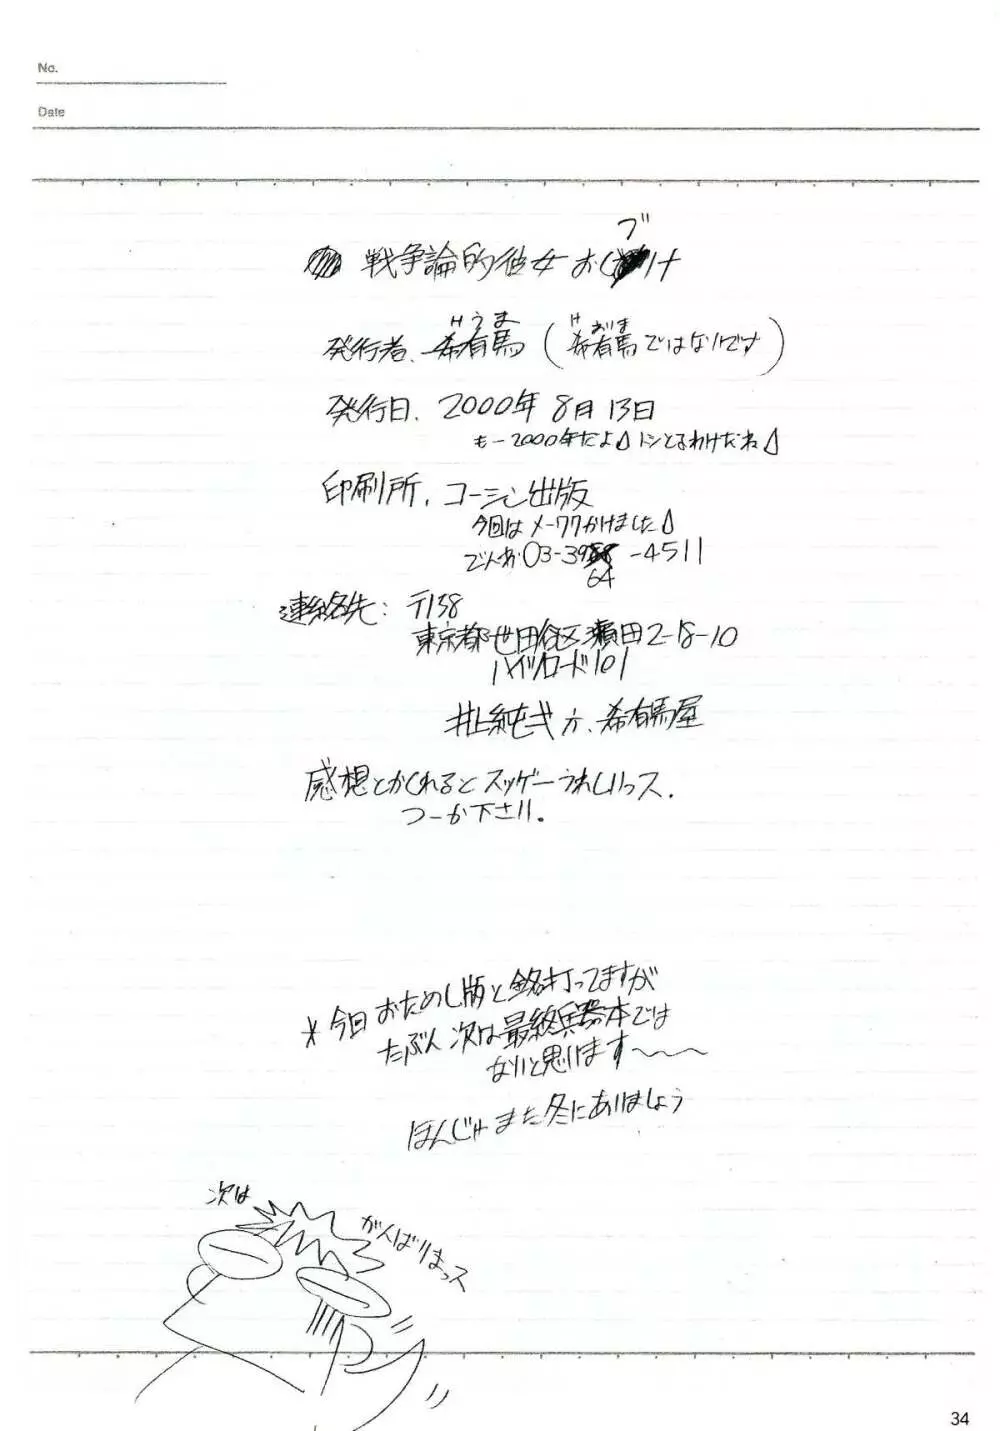 No.
Date
戦争論的彼女 おし
ブ
け
けうま
発行者、希有馬(希有馬ではないです)
けおりま
発行日、2000年 8月 13日
もー2000年だよ トシとるわけだね
印刷所、コーシン出版
今回はメーワクかけました
でんわ 03-39 -4511
64
連絡先: 〒158
東京都世田谷区瀬田2-18-10
ハイツロード101
井上純弌 方、希有馬屋
感想とかくれるとスッゲーうれしいっス.
つーか下さい。
*今回おためし版と銘打ってますが
たぶん次は最終兵器本では
ないと思います〜〜〜
ほんじゃまた冬にあいましょう
次は
がんばりまっス
34